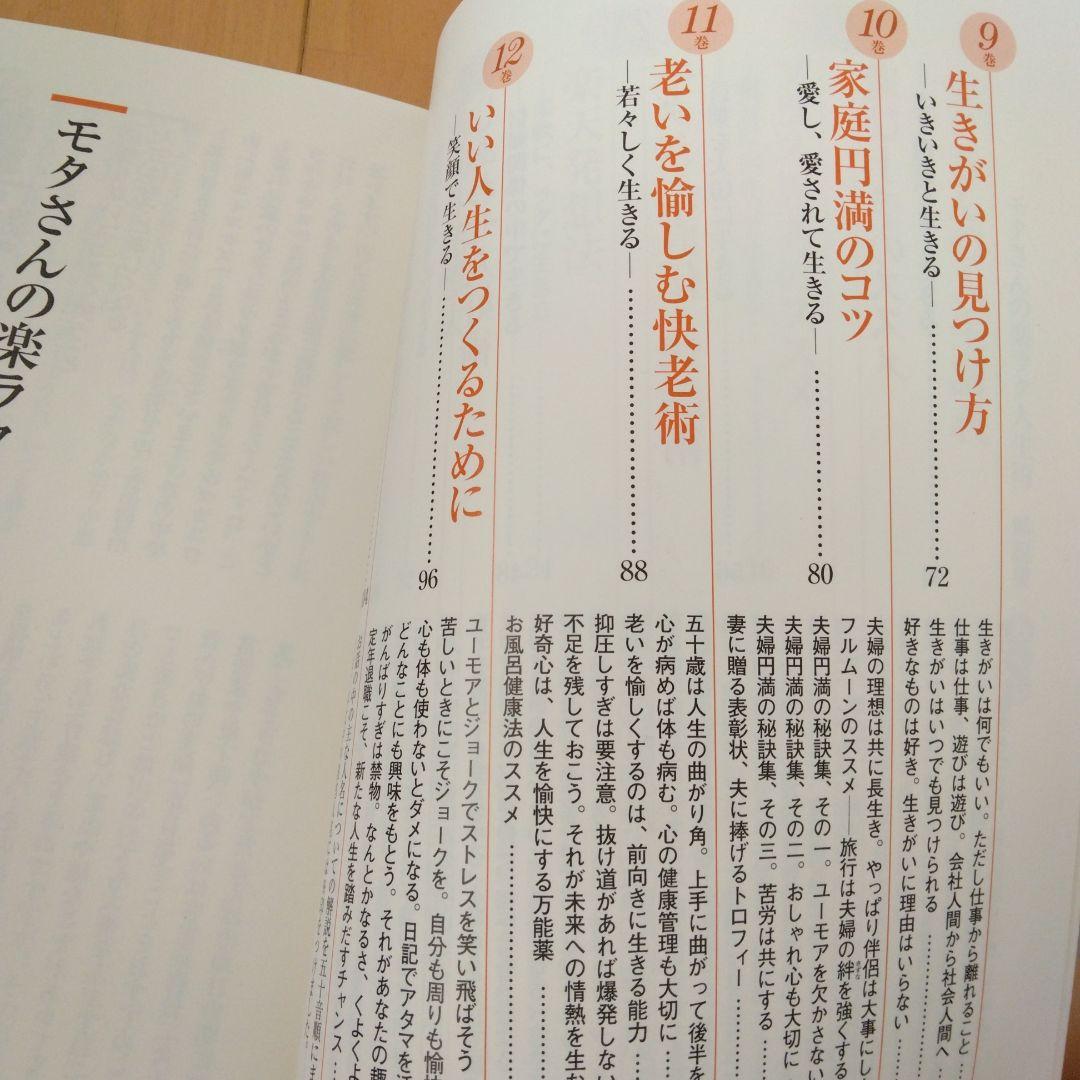 9巻
生きがいの見つけ方
―いきいきと生きる― ……………… 72
生きがいは何でもいい。ただし仕事から離れること…
仕事は仕事、遊びは遊び。会社人間から社会人間へ
生きがいはいつでも見つけられる ………
好きなものは好き。生きがいに理由はいらない ……
10巻
家庭円満のコツ
―愛し、愛されて生きる― ……………… 80
夫婦の理想は共に長生き。やっぱり伴侶は大事にし
フルムーンのススメ――旅行は夫婦の絆を強くする
きずな
夫婦円満の秘訣集、その一。ユーモアを欠かさない
夫婦円満の秘訣集、その二。おしゃれ心も大切に
夫婦円満の秘訣集、その三。苦労は共にする ……
妻に贈る表彰状、夫に捧げるトロフィー ………
11巻
老いを愉しむ快老術
―若々しく生きる― ……………… 88
五十歳は人生の曲がり角。上手に曲がって後半を
心が病めば体も病む。心の健康管理も大切に ……
老いを愉しくするのは、前向きに生きる能力 ……
抑圧しすぎは要注意。抜け道があれば爆発しない
不足を残しておこう。それが未来への情熱を生む
好奇心は、人生を愉快にする万能薬 ………
お風呂健康法のススメ ………………
12巻
いい人生をつくるために
―笑顔で生きる― ……………… 96
ユーモアとジョークでストレスを笑い飛ばそう
苦しいときにこそジョークを。自分も周りも愉快
心も体も使わないとダメになる。日記でアタマを
どんなことにも興味をもとう。それがあなたの趣
がんばりすぎは禁物。なんとかなるさ、くよくよ
定年退職こそ、新たな人生を踏みだすチャンス …
お話の中の主な人名についての解説を五十音順にま
モタさんの楽ラ